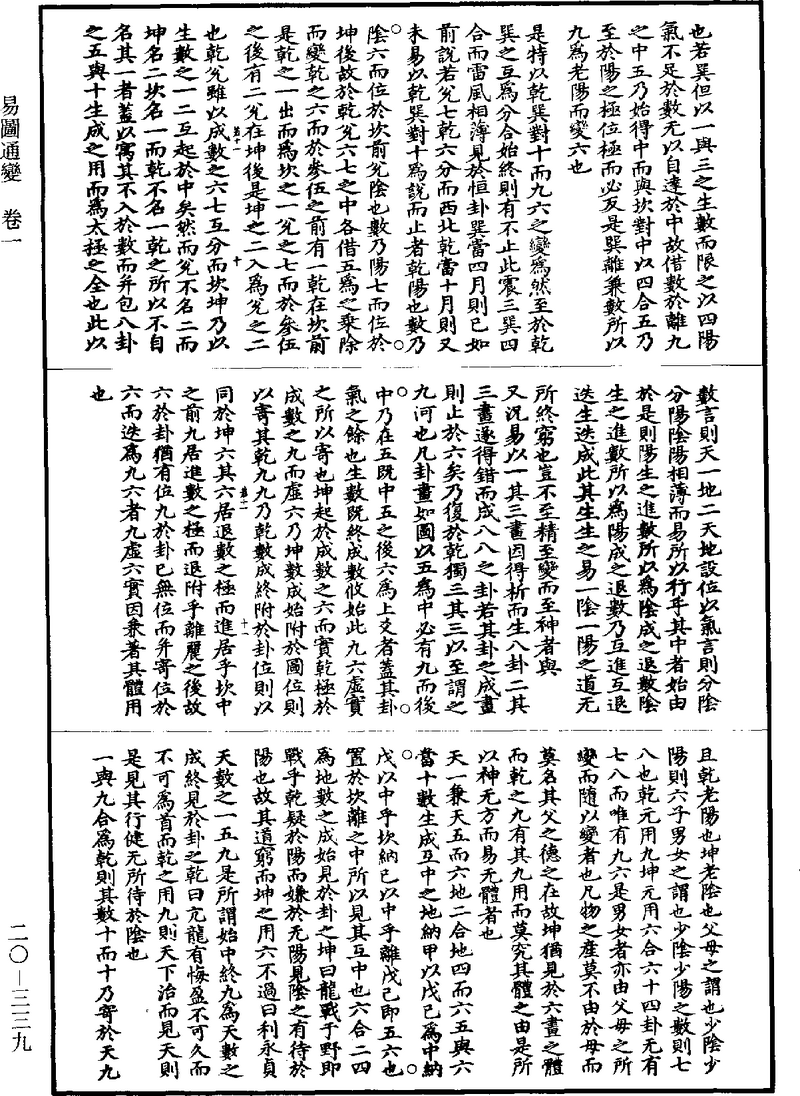 易圖通變　卷一
二〇—三三九
也若巽但以一與三之生數而限之以四陽
氣不足於數无以自達於中故借數於離九
之中五乃始得中而與坎對中以四合五乃
至於陽之極位極而必反是巽離兼數所以
九為老陽而變六也
是特以乾巽對十而九六之變為然至於乾
巽之互為分合始終則有不止此震三巽四
合而雷風相薄見於恒卦巽當四月則已如
前說若兌七乾六分而西北乾當十月則又
未易以乾巽對十為說而止者乾陽也數乃
陰六而位於坎前兌陰也數乃陽七而位於
坤後故於乾兌六七之中各借五為之乘除
而變乾之六而於參伍之前有一乾在坎前
是乾之一出而為坎之一兌之七而於參伍
之後有二兌在坤後是坤之二入為兌之二
第十一　十
也乾兌雖以成數之六七互分而坎坤乃以
生數之一二互起於中矣然而兌不名二而
坤名二坎名一而乾不名一乾之所以不自
名其一者蓋以寓其不入於數而并包八卦
之五與十生成之用而為太極之全也此以
數言則天一地二天地設位以氣言則分陰
分陽陰陽相薄而易所以行乎其中者始由
於是則陽生之進數所以為陰成之退數陰
生之進數所以為陽成之退數乃互進互退
迭生迭成此其生生之易一陰一陽之道无
所終窮也豈不至精至變而至神者與
又況易以一其三畫因得析而生八卦二其
三畫遂得錯而成八八之卦若其卦之成畫
則止於六矣乃復於乾獨三其三以至謂之
九河也凡卦畫如圖以五為中必有九而後
中乃在五既中五之後六為上爻者蓋其卦
氣之餘也生數既終成數攸始此九六虛實
之所以寄也坤起於成數之六而實乾極於
成數之九而虛六乃坤數成始附於圖位則
以寄其乾九九乃乾數成終附於卦位則以
十一
同於坤六其六居退數之極而進居乎坎中
之前九居進數之極而退附乎離麗之後故
六於卦猶有位九於卦已無位而并寄位於
六而迭為九六者九虛六實因兼著其體用
也
且乾老陽也坤老陰也父母之謂也少陰少
陽則六子男女之謂也少陰少陽之數則七
八也乾元用九坤元用六合六十四卦无有
七八而唯有九六是男女者亦由父母之所
變而隨以變者也凡物之產莫不由於母而
莫名其父之德之在故坤猶見於六畫之體
而乾之九有其九用而莫究其體之由是所
以神无方而易无體者也
天一兼天五而六地二合地四而六五與六
當十數生成互中之地納甲以戊己為中納
戊以中乎坎納己以中乎離戊己即五六也
置於坎離之中所以見其互中也六合二四
為地數之成始見於卦之坤曰龍戰于野即
戰乎乾疑於陽而嫌於无陽見陰之有待於
陽也故其道窮而坤之用六不過曰利永貞
天數之一五九是所謂始中終九為天數之
成終見於卦之乾曰亢龍有悔盈不可久而
不可為首而乾之用九則天下治而見天則
是見其行健无所待於陰也
一與九合為乾則其數十而十乃寄於天九